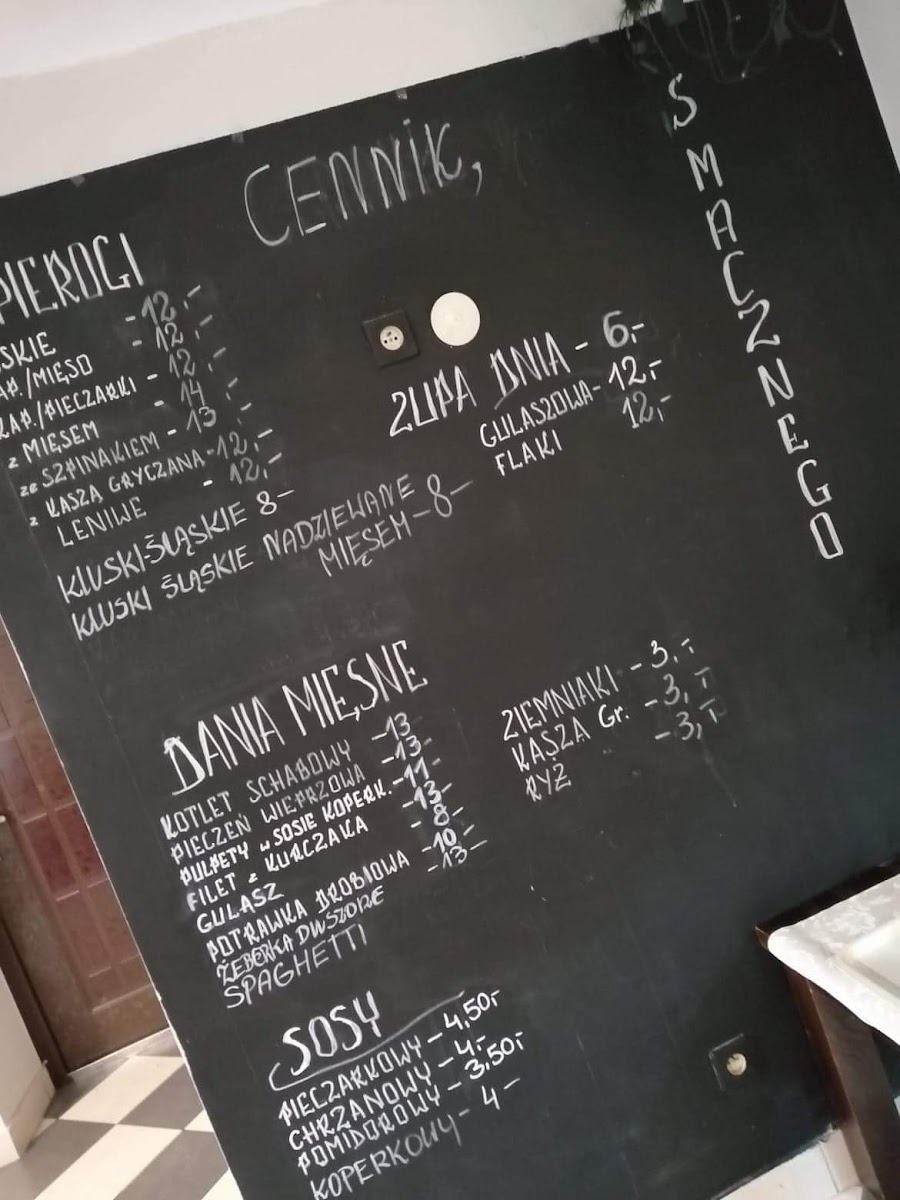 CENNIK,
SMACZNEGO
PIEROGI
SKIE - 12,-
AP./MIĘSO - 12,-
KAP./PIECZARKI - 12,-
z MIĘSEM 14 -
ze SZPINAKIEM - 13 -
z KASZĄ GRYCZANĄ - 12,-
LENIWE - 12,-
KLUSKI-ŚLĄSKIE 8-
KLUSKI ŚLĄSKIE NADZIEWANE
MIĘSEM - 8-
ZUPA DNIA - 6,-
GULASZOWA - 12,-
FLAKI 12,-
DANIA MIĘSNE
KOTLET SCHABOWY - 13
PIECZEŃ WIEPRZOWA - 13-
PULPETY w SOSIE KOPERK. - 11-
FILET z KURCZAKA - 13-
GULASZ - 8-
POTRAWKA DROBIOWA - 10-
ŻEBERKA DUSZONE - 13-
SPAGHETTI
ZIEMNIAKI - 3,-
KASZA Gr. - 3,-
RYŻ - 3,-
SOSY
PIECZARKOWY - 4,50-
CHRZANOWY - 4,-
POMIDOROWY - 3,50-
KOPERKOWY - 4-